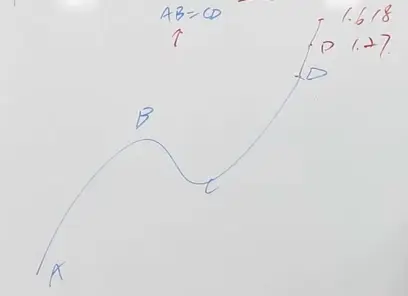 AB=CD
↑
1.618
D 1.27
D
B
C
A